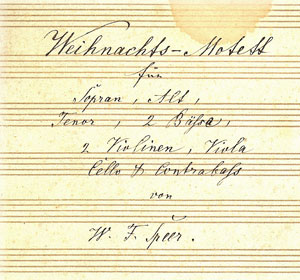 Weihnachts-Motett
für
Sopran, Alt,
Tenor, 2 Bässe,
2 Violinen, Viola
Cello & Contrabaß
von
W. F. Speer.